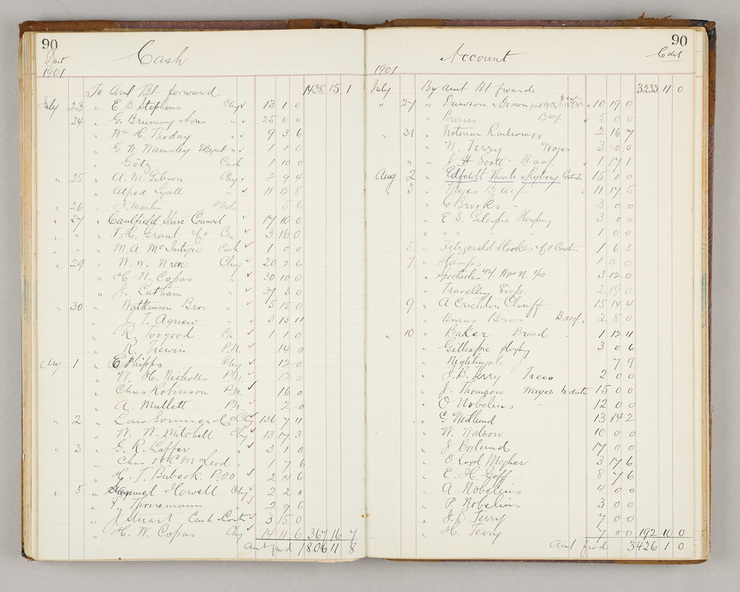 90
Cash
1901
To Amt Bt forward 1438 15 1
July 23 " E. D. Stephens Chq 13 1 0
24 " G. Brunning & Sons " 25 0 0
" Wm H. Thoday " 9 3 6
" G. W. Namsley " 1 1 0
" Götz Cash 1 10 0
" 25 " A. M. Gibson Chq 2 9 4
" Alfred Lyall " 11 12 8
" 26 " J. Martin 5 6
" 27 Caulfield Shire Council 14 10 0
" " F. H. Grant & Co 3 16 0
" " M A McIntyre Cash 1 0 0
" 29 " W. W. Wren Chq 20 2 6
" H. W. Copas " 30 10 0
" J. Latham " 37 3 0
" 30 " Watkinson Bros " 5 15 0
" J. T. Agnew " 3 13 11
" R. Toogood 1 1 0
" R. Trewin P.N. 14 0
Aug 1 " E Phipps Chq 12 0
" W. H. Nicholls
" Chas Robinson P.N. 16 0
" A. Mullett P.N. 2 0
" 2 " Law Somner & Co 136 7 11
" W. N. Mitchell Chq 13 17 3
" 3 " G. R. Laffer 3 1 0
" Chas McLeod 1 7 6
" H. J. Bulcock P.O.O 2 4 6
" 5 " Samuel Howell Chq 2 2 0
" Thonemann 2 9 6
" J Stuart Cash 3 15 0
" H. W. Copas Chq 14 11 6 367 16 7
Amt fwd 1806 11 8
90
Account
1901
July By Amt Bt fward 3233 11 0
" 27 " Dawson 10 19 0
" Burns
" 31 " Victorian Railways 2 16 7
" W. Terry Wages 3 0 0
" J. H. Scott 1 17 1
Aug 2 " 15 0 0
" 3 " 11 17 5
" C Brooks 3 0 0
" E. S. Gillespie 3 0 0
" " 1 0 0
" 5 " Fitzgerald 1 6 3
" 7 " Stamps 1 0 0
" 3 12 0
" Travelling Exps 2 19 0
" 9 " A Crichton Chaff 15 14 4
" Burns Bros 2 8 0
" 10 " Baker Bread 1 12 11
" Gillespie 3 0 6
" Nightingal 7 9
" J. B. Terry Trees 2 0 0
" J. Thomson Wages 15 0 0
" O Nobelius 12 0 0
" C. Medlund 13 14 2
" W. Nelson 10 0 0
" J. 17 0 0
" 3 17 6
" E. H. Goff 8 7 6
" A. Nobelius 4 0 0
" P. Nobelius 3 0 0
" J. B. Terry 7 0 0
" H. Terry 7 0 0 192 10 0
Amt fwd 3426 1 0